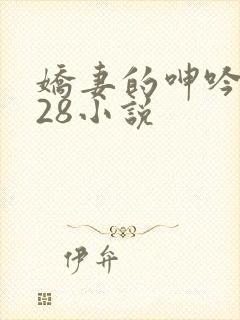 嬌妻的呻吟
28小說
伊弁